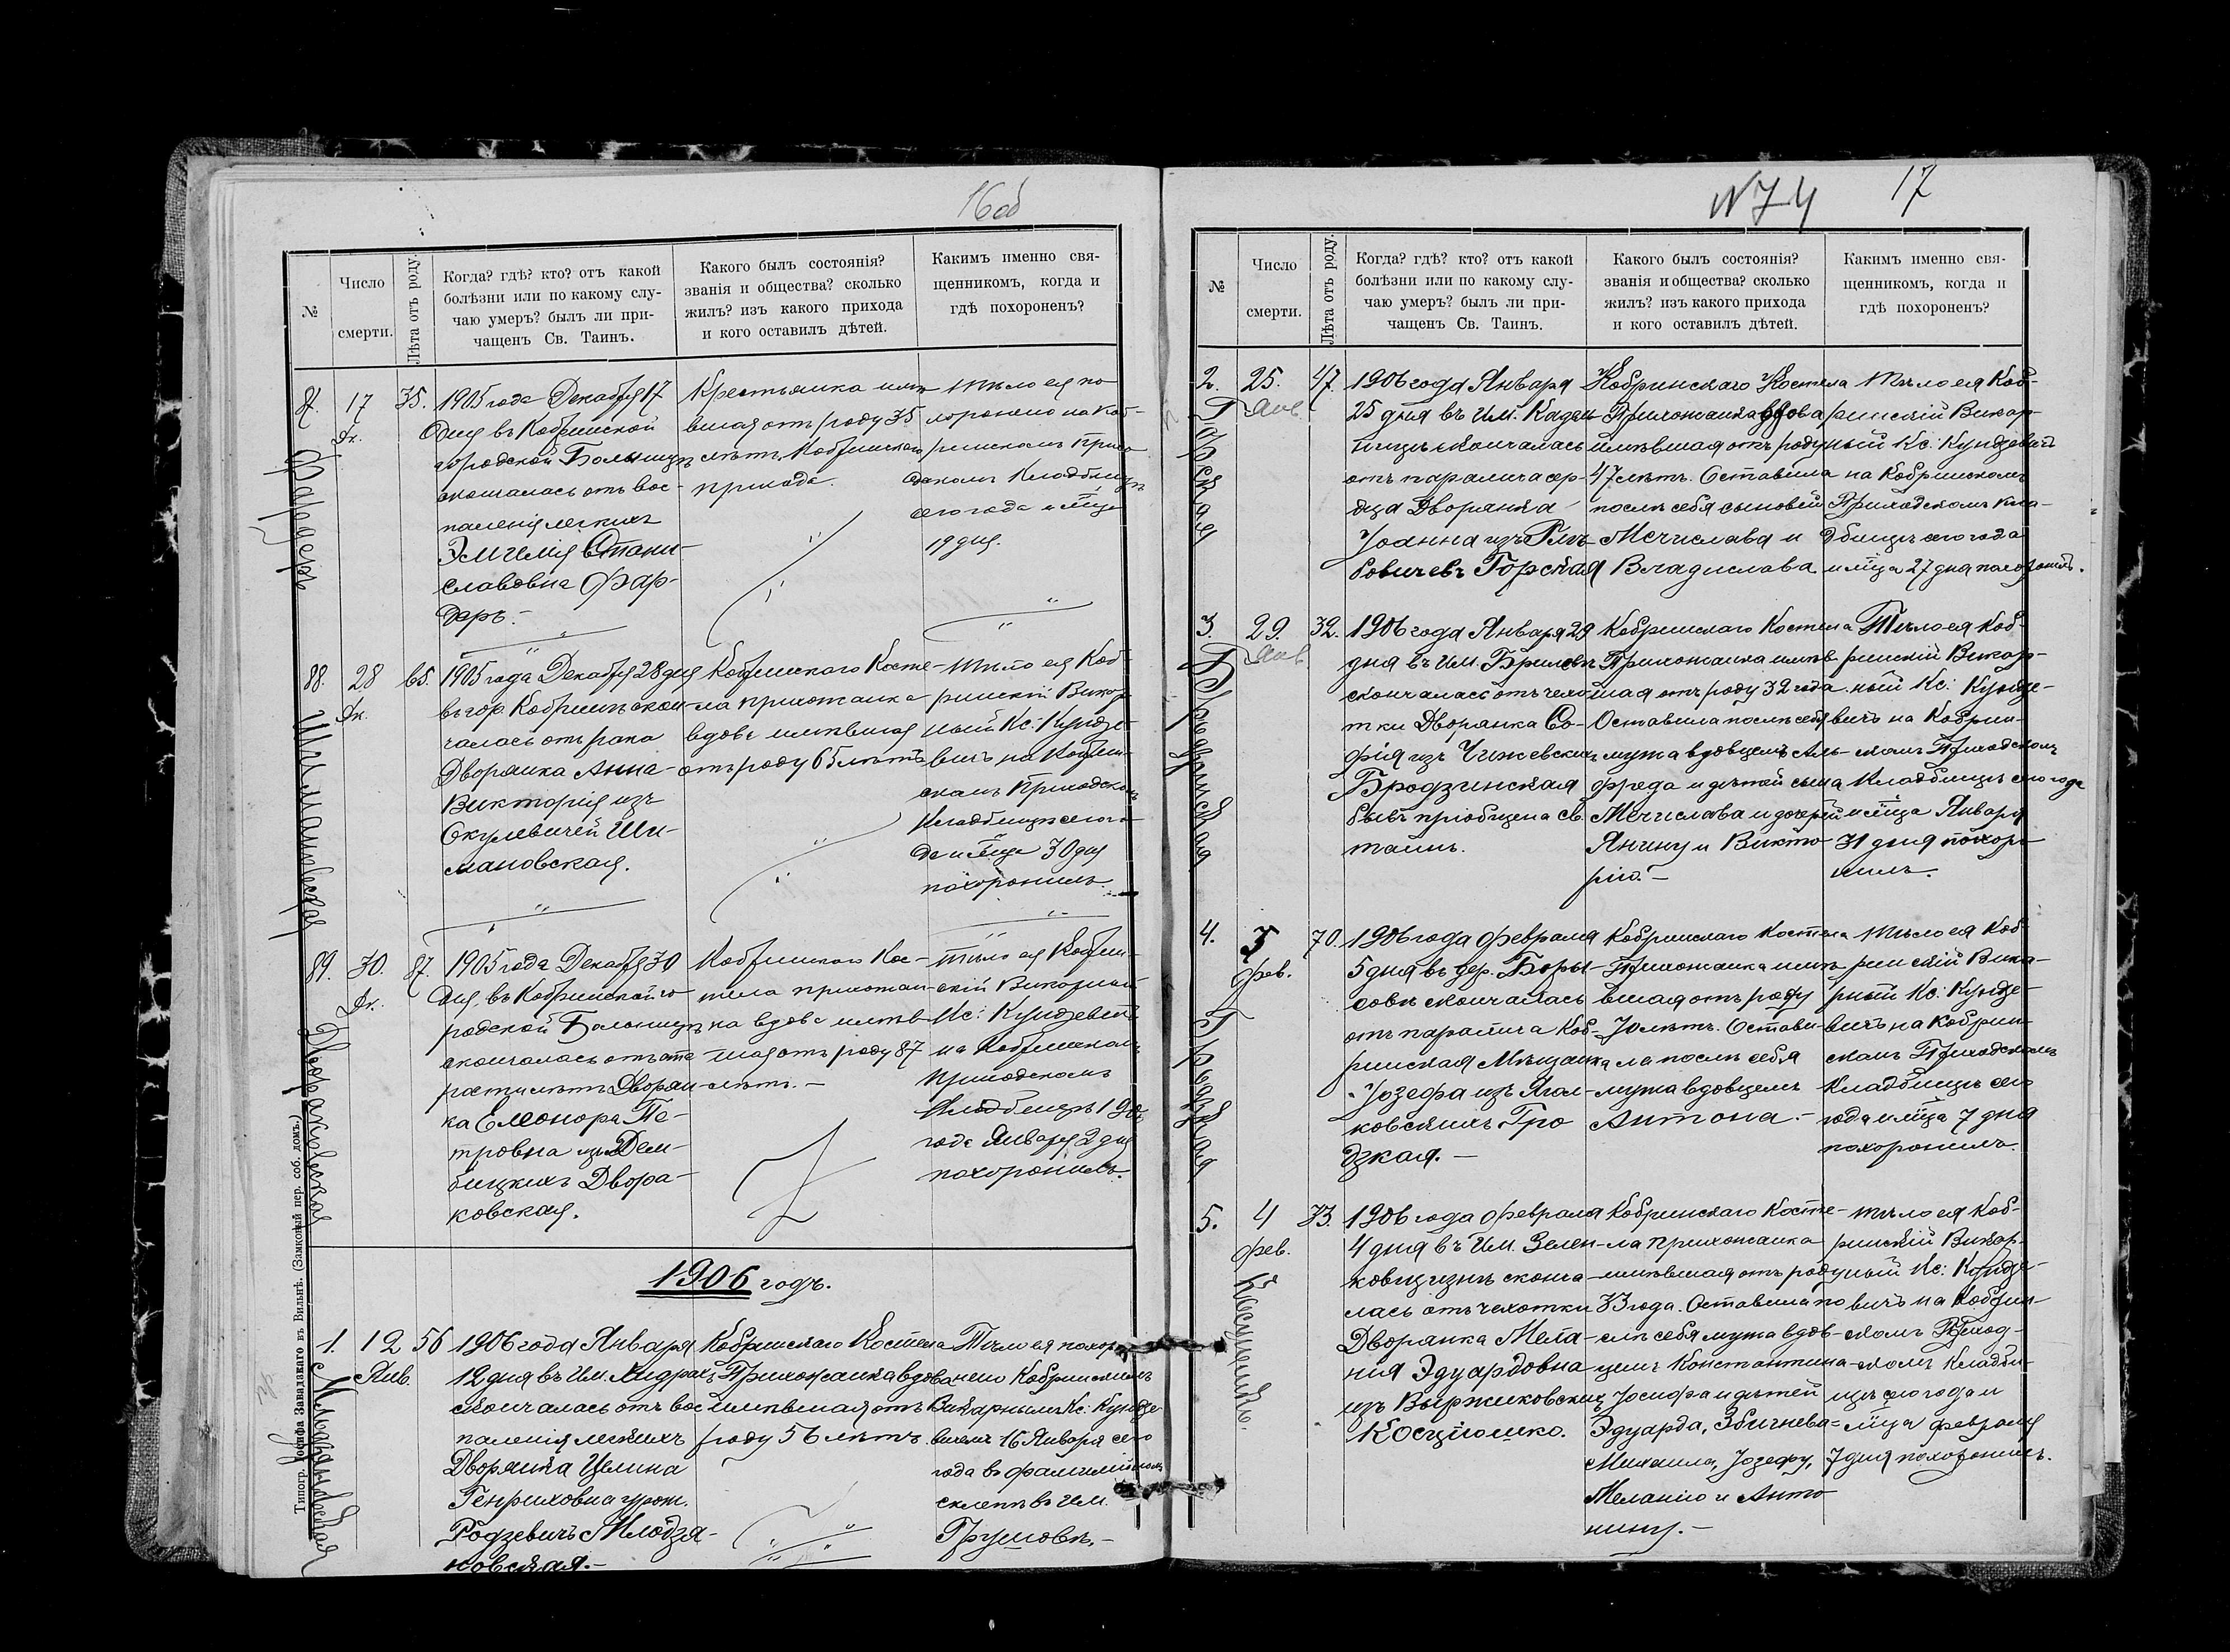 16 об
№
Число
смерти.
Лѣта отъ роду.
Когда? гдѣ? кто? отъ какой
болѣзни или по какому слу-
чаю умеръ? былъ ли при-
чащенъ Св. Таинъ.
Какого былъ состоянія?
званія и общества? сколько
жилъ? изъ какого прихода
и кого оставилъ дѣтей.
Какимъ именно свя-
щенникомъ, когда и
гдѣ похороненъ?
17
Дк.
35.
1905 года Декабря 17
дня въ Кобринской
городской Больницѣ
скончалась отъ вос-
паленія легкихъ
Эмилія Стани-
славовна Фар-
деръ.-
Крестьянка имѣ
вшая отъ роду 35
лѣтъ, Кобринскаго
прихода.
Тѣло ея по
хоронено на Коб-
ринскомъ Прихо
дскомъ Кладбищѣ
сего года и м̃ца
19 дня.
88.
28
Дк.
65.
Шимановская
1905 года Декабря 28 дня
въ гор. Кобринѣ скон-
чалась отъ рака
Дворянка Анна-
Викторія изъ
Окулевичей Ши-
мановская.
Кобринскаго Косте-
ла прихожанка
вдова имѣвшая
отъ роду 65 лѣтъ
Тѣло ея Коб-
ринскій Викар
ный Кс: Кундзе-
вичъ на Кобрин-
скомъ Приходскомъ
Кладбищѣ сего го-
да и м̃ца 30 дня
похоронилъ.
89.
30.
Дк.
87.
Двораковская
1905 года Декабря 30
дня, въ Кобринской го
родской Больницѣ
скончалась отъ ста
рости лѣтъ Дворян-
ка Елеонора Пе-
тровна изъ Дем-
бицкихъ Двора-
ковская.
Кобринскаго Кос-
тела прихожан-
ка вдова имѣв
шая отъ роду 87
лѣтъ.-
Тѣло ея Кобрин-
скій Викарный
Кс: Кундзевичъ
на Кобринскомъ
Приходскомъ
Кладбищѣ 1906
года Января 2 дня
похоронилъ.
1906 годъ.
1.
12
Янв.
56
Млодзяновская
1906 года Января
12 дня въ Им. Андрахъ
скончалась отъ вос
паленія легкихъ
Дворянка Целина
Генриховна урож.
Родзевичъ Млодзя-
новская.-
Кобринскаго Костела
Прихожанка вдова
имѣвшая отъ
роду 56 лѣтъ.
Тѣло ея похоро
нено Кобринскимъ
Викарнымъ Кс: Кундзе
вичемъ 16 Января сего
года въ фамилійномъ
склепѣ въ Им.
Грушовѣ.-
Типогр. Іосифа Завадзкаго въ Вильнѣ. (Замковый пер. соб. домъ.)
N 74
17
№
Число
смерти.
Лѣта отъ роду.
Когда? гдѣ? кто? отъ какой
болѣзни или по какому слу-
чаю умеръ? былъ ли при-
чащенъ Св. Таинъ.
Какого былъ состоянія?
званія и общества? сколько
жилъ? изъ какого прихода
и кого оставилъ дѣтей.
Какимъ именно свя-
щенникомъ, когда и
гдѣ похороненъ?
2.
25.
Янв.
47.
Горская
1906 года Января
25 дня въ Им.
скончалась
отъ паралича сер-
дца Дворянка
Іоанна изъ
Горская
Кобринскаго Костела
Прихожанка вдова
имѣвшая отъ роду
47 лѣтъ. Оставила
послѣ себя сыновей
Мечислава и
Владислава
Тѣло ея Коб-
ринскій Викар-
ный Кс: Кундзевичъ
на Кобринскомъ
Приходскомъ Кла-
дбищѣ сего года
и м̃ца 27 дня похоронилъ.
3.
29.
Янв
32.
Бродзинская
1906 года Января 29
дня въ Им. Брилевѣ
скончалась отъ чахо
тки Дворянка Со-
фія изъ Чижевскихъ
Бродзинская
бывъ пріобщена Св.
таинъ.
Кобринскаго Костела
Прихожанка имѣв
шая отъ роду 32 года.
Оставила послѣ себя
мужа вдовцемъ Аль-
фреда и дѣтей сына
Мечислава и дочерей
Янину и Викто-
рію.-
Тѣло ея Коб-
ринскій Викар-
ный Кс: Кундзе-
вичъ на Кобрин-
скомъ Приходскомъ
Кладбищѣ сего года
и м̃ца Января
31 дня похоро-
нилъ.
4.
5
Фев.
70.
Гродзкая
1906 года Февраля
5 дня въ дер. Бори-
совѣ скончалась
отъ паралича Коб-
ринская Мѣщанка
Іозефа изъ Ягол-
ковскихъ Гро
дзкая.-
Кобринскаго Костела
Прихожанка имѣ
вшая отъ роду
70 лѣтъ. Остави-
ла послѣ себя
мужа вдовцемъ
Антона.-
Тѣло ея Коб-
ринскій Вика-
рный Кс: Кундзе-
вичъ на Кобрин-
скомъ Приходскомъ
Кладбищѣ сего
года и м̃ца 7 дня
похоронилъ.
5.
4
Фев.
33.
Косцюшко.
1906 года Февраля
4 дня въ Им. Зелен-
ковщизнѣ сконча-
лась отъ чахотки
Дворянка Мела-
нія Эдуардовна
изъ Выржиковскихъ
Косцюшко.
Кобринскаго Косте-
ла прихожанка
имѣвшая отъ роду
33 года. Оставила по
слѣ себя мужа вдов-
цемъ Константина-
Іосифа и дѣтей
Эдуарда, Збигнева-
Михаила, Іозефу,
Меланію и Анто
нину.-
Тѣло ея Коб-
ринскій Викар-
ный Кс: Кундзе-
вичъ на Кобрин-
скомъ Приход-
скомъ Кладби-
щѣ сего года и
м̃ца Февраля
7 дня похоронилъ.